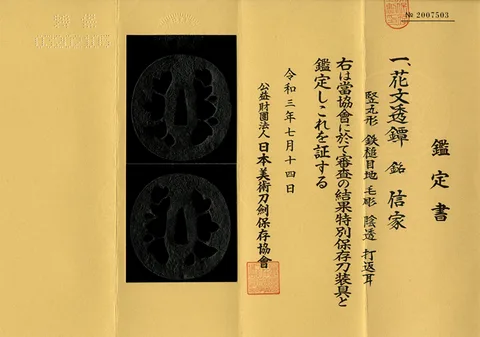 № 2007503
鑑定書
一、花文透鐔 銘 信家
竪丸形 鉄槌目地 毛彫 陰透 打返耳
右は當協會に於て審査の結果特別保存刀装具と
鑑定しこれを証する
令和三年七月十四日
公益財團法人 日本美術刀劍保存協會